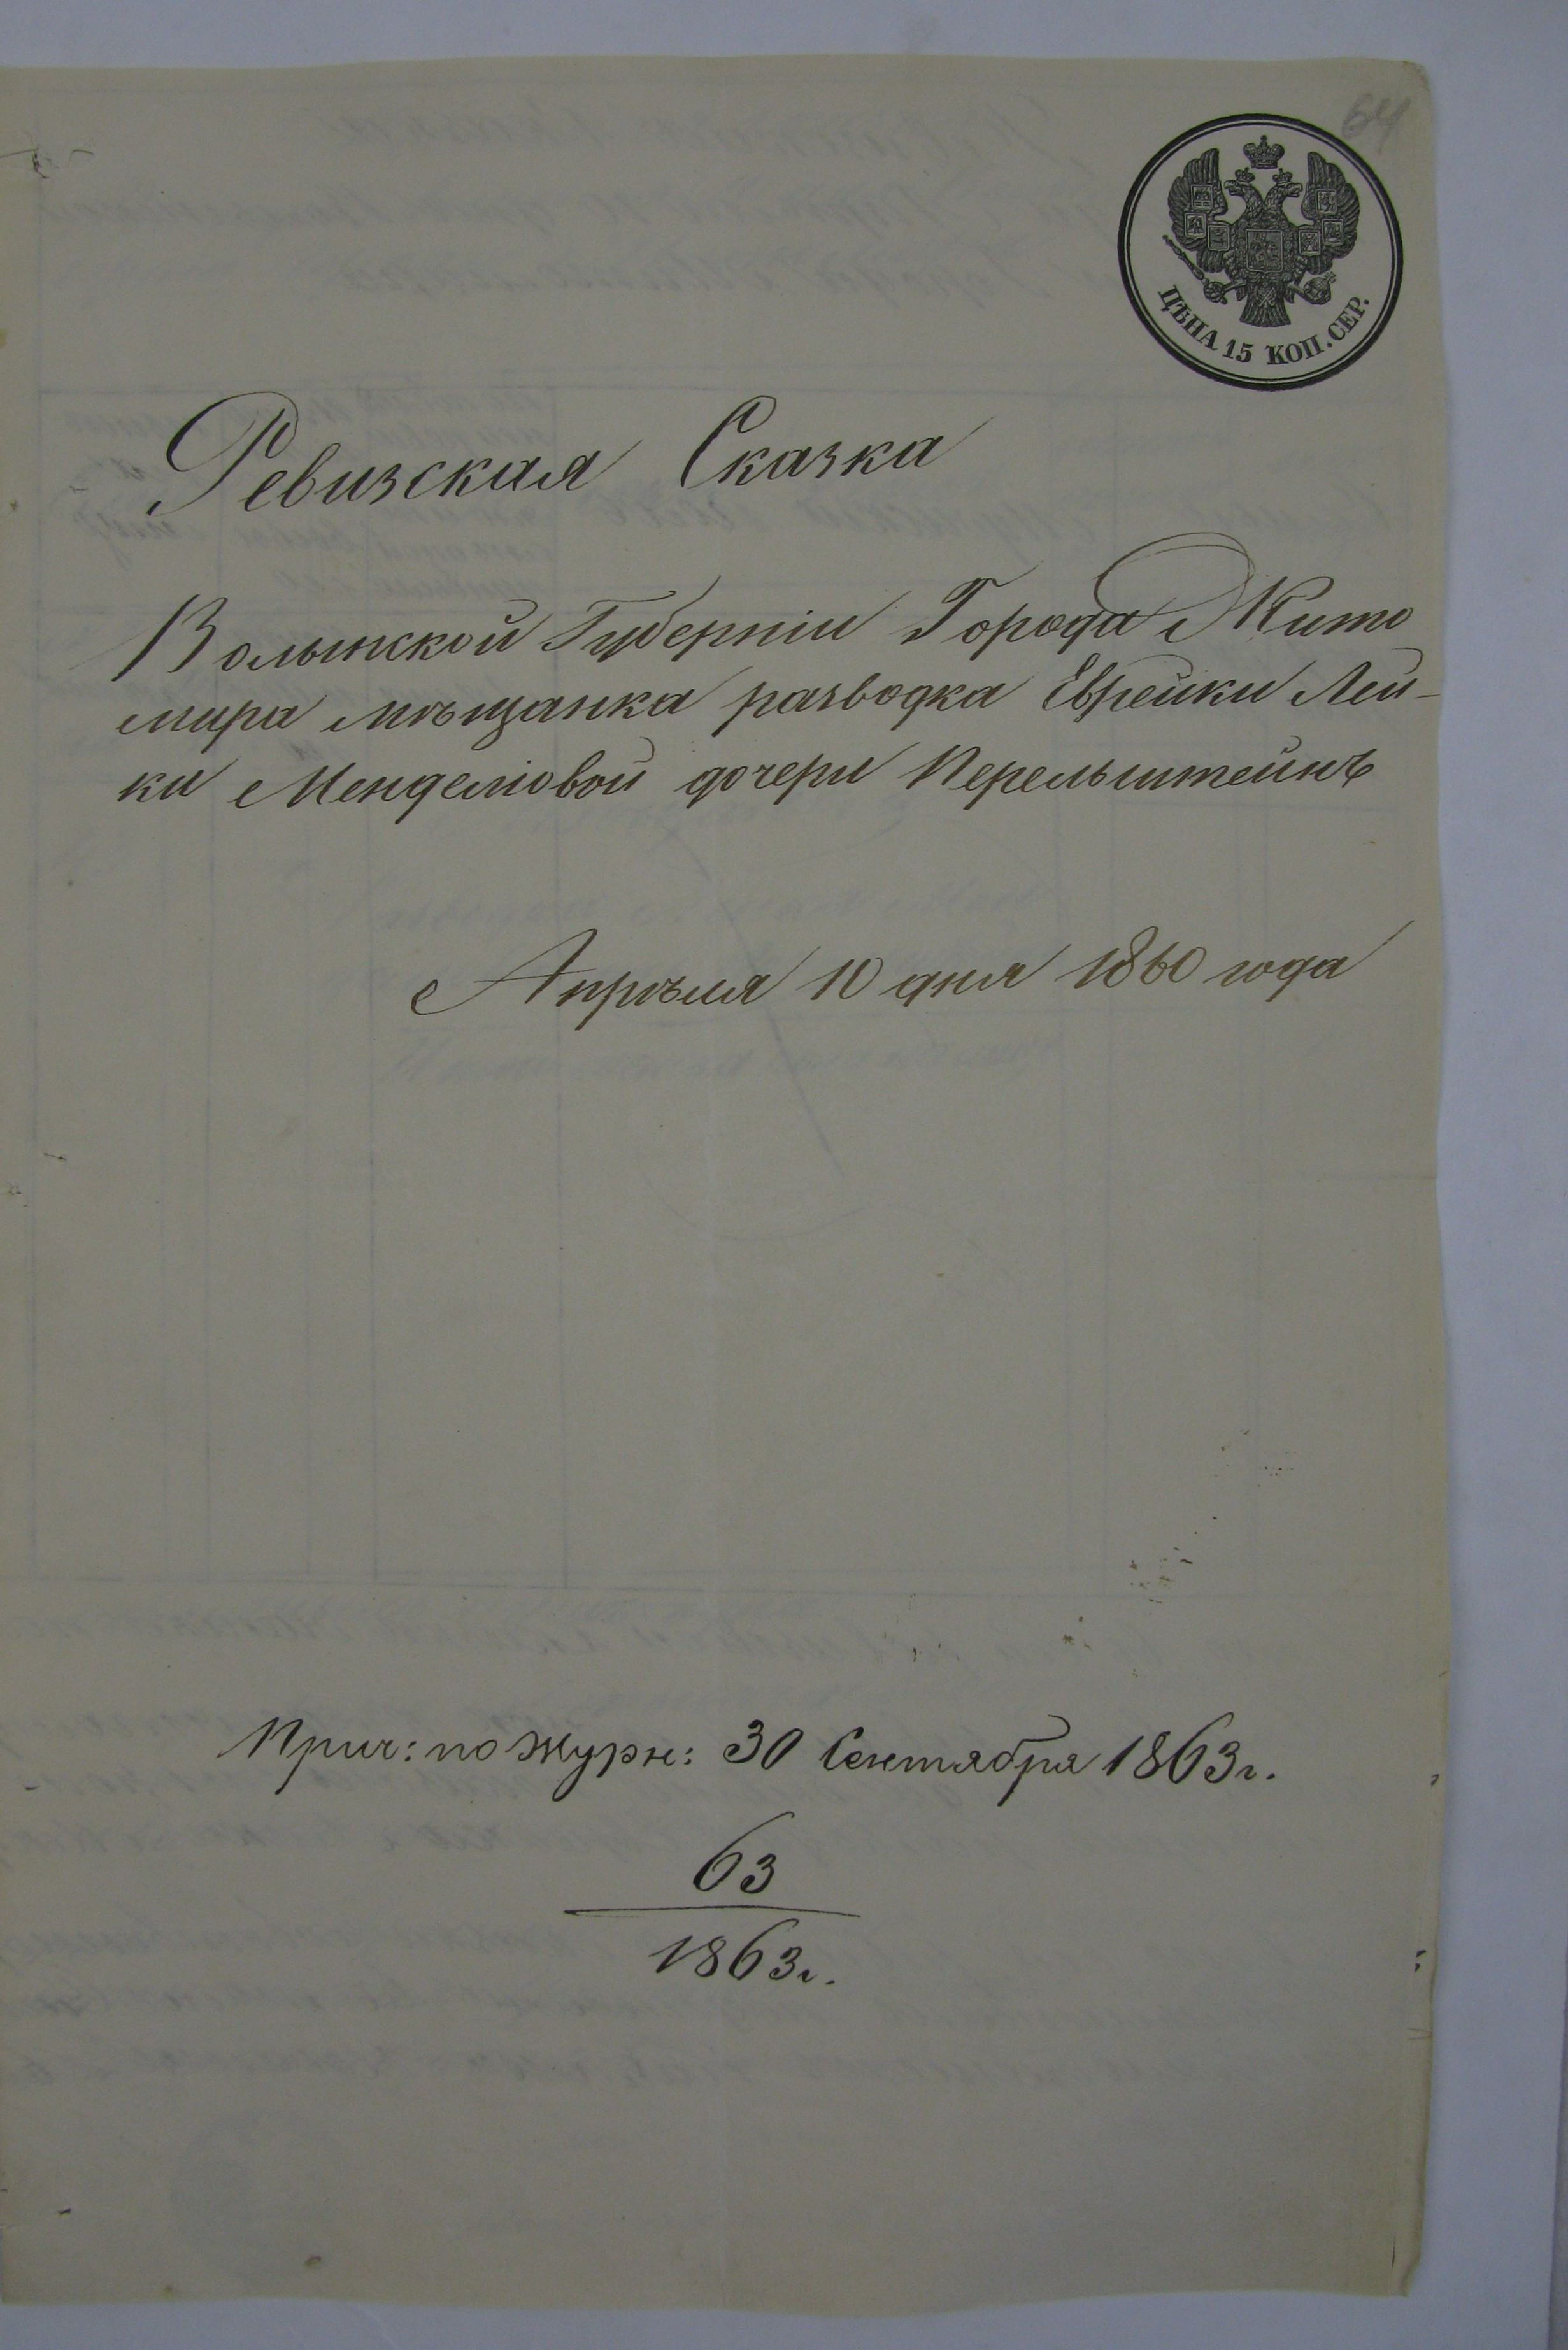 64
ЦѢНА 15 КОП. СЕР.
Ревизская Сказка
Волынской Губерніи Города Жито
мира мѣщанка разводка Еврейки Лей-
ки Менделіовой дочери Перельштейнъ
Апрѣля 10 дня 1860 года
Прич: по журн: 30 Сентября 1863 г.
63
1863 г.